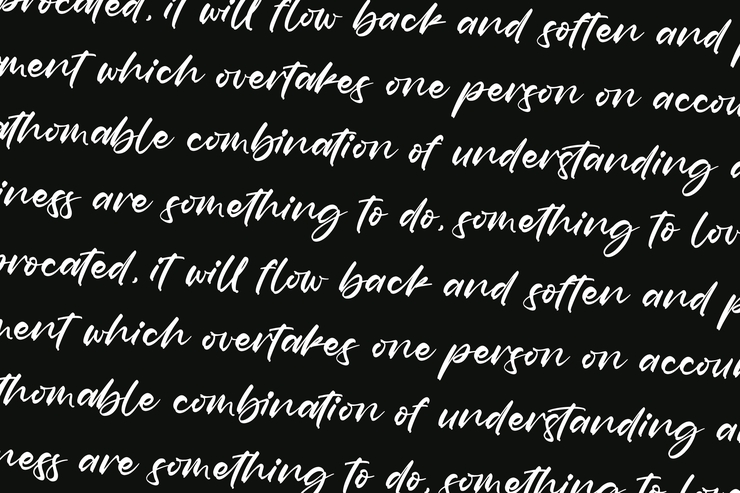 procated, it will flow back and soften and p
ment which overtakes one person on accou
athomable combination of understanding a
iness are something to do, something to lov
procated, it will flow back and soften and p
ment which overtakes one person on accoun
thomable combination of understanding a
ness are something to do, something to lov